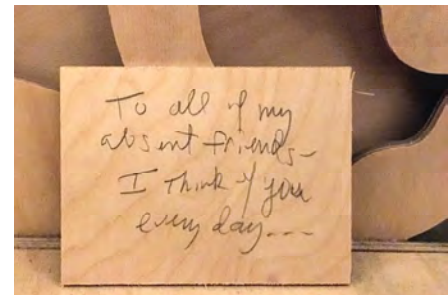 To all of my
absent friends-
I Think of you
every day...